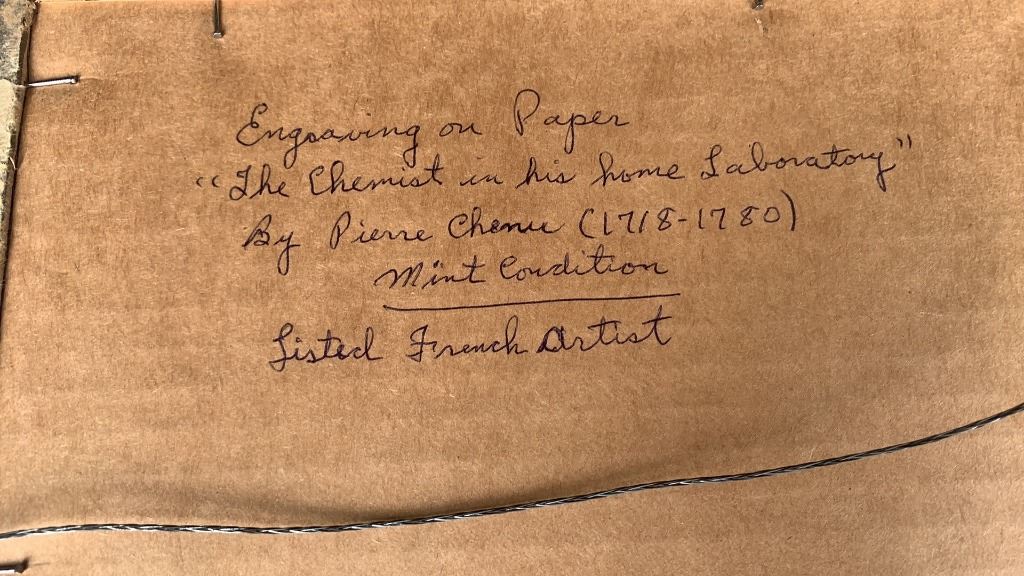 Engraving on Paper
"The Chemist in his home Laboratory"
By Pierre Chenu (1718-1780)
Mint Condition
Listed French Artist